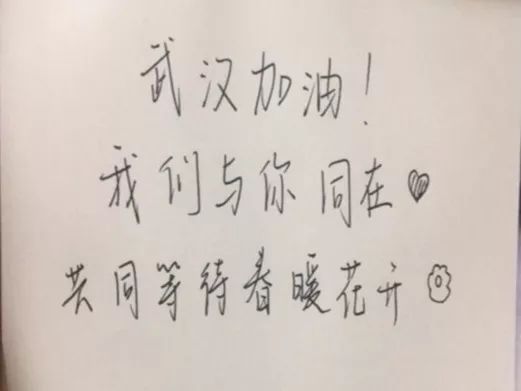 武汉加油！
我们与你同在♥
共同等待春暖花开